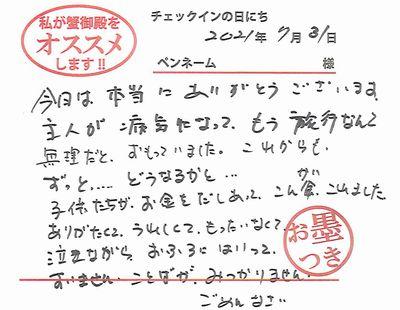 私が蟹御殿を
オススメ
します!!
チェックインの日にち
2021年7月31日
ペンネーム 様
今日は本当にありがとうございます
主人が病気になって、もう旅行なんて
無理だと、おもっていました。これからも、
ずっと‥‥どうなるかと…
子供たちが、お金をだしあって、こ
ありがたくて、うれしくて、もったいなくて、
泣きながら、おふろにはいって、
すいません ことばが、みつかりません。
ごめんなさい
お墨
つき